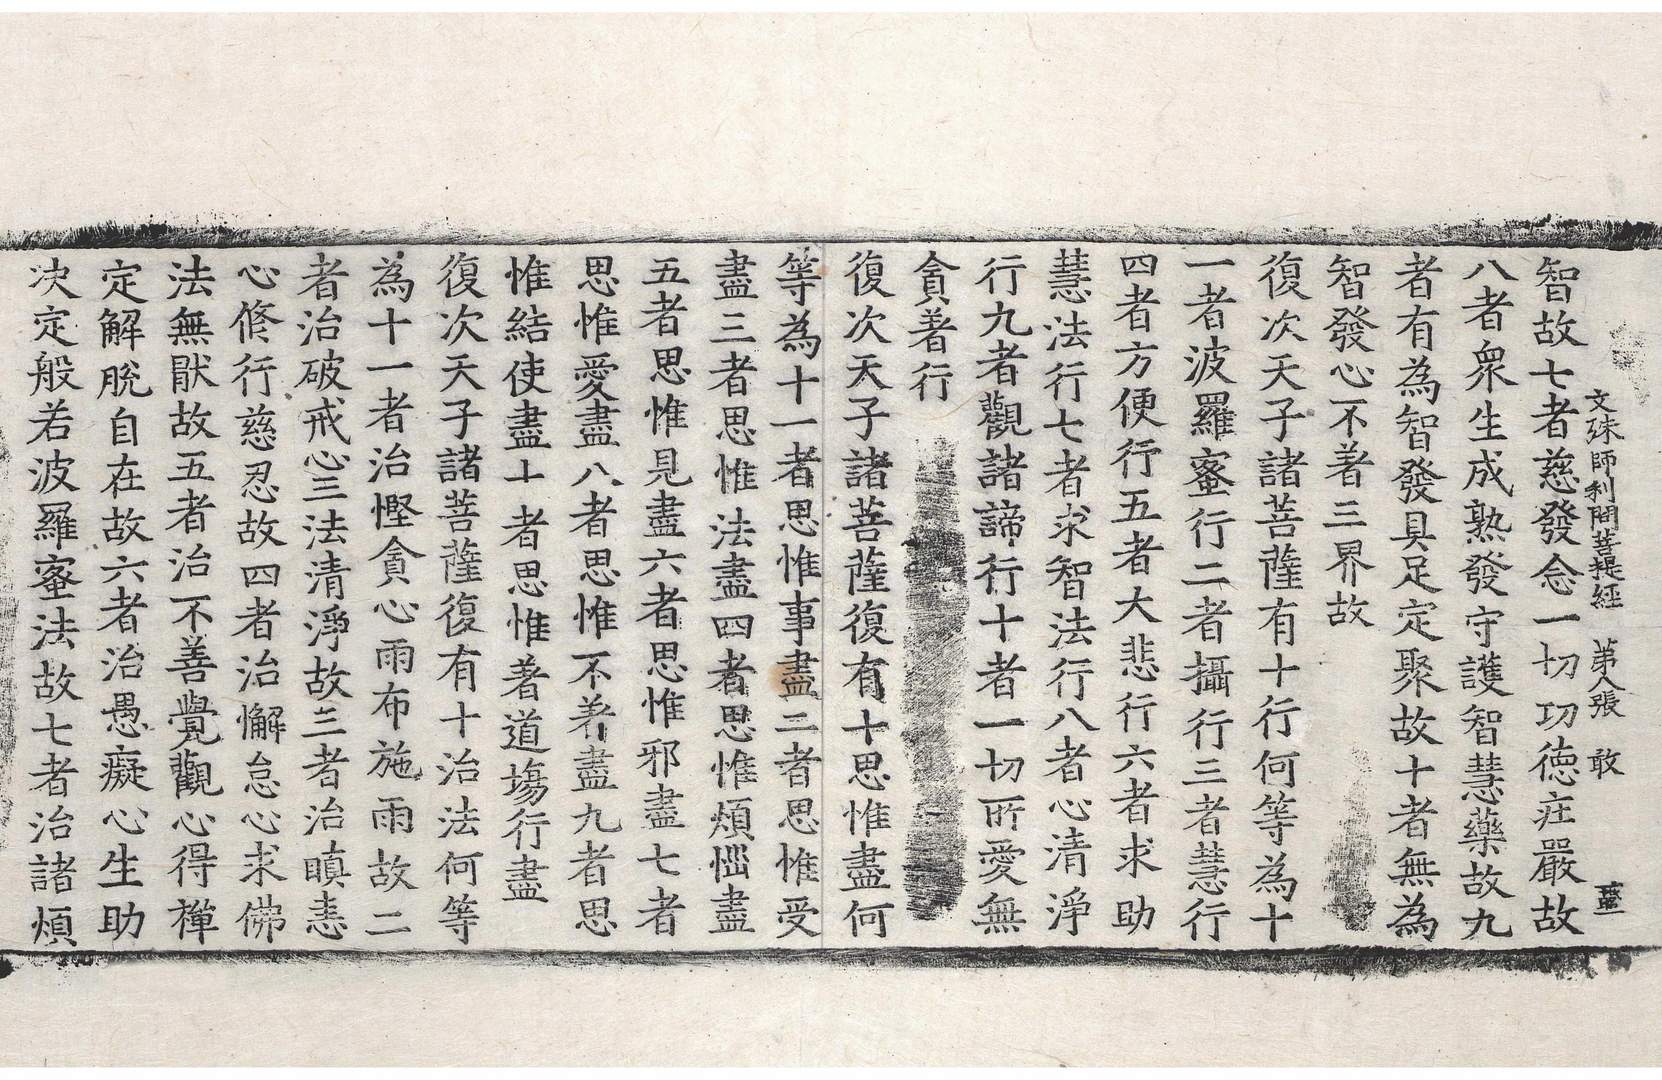 文殊師利問菩提經 苐八張 敢
智故七者慈發念一切功徳莊嚴故
八者衆生成熟發守護智慧藥故九
者有為智發具足定聚故十者無為
智發心不著三界故
復次天子諸菩薩有十行何等為十
一者波羅蜜行二者攝行三者慧行
四者方便行五者大悲行六者求助
慧法行七者求智法行八者心清淨
行九者觀諸諦行十者一切所愛無
貪著行
復次天子諸菩薩復有十思惟盡何
等為十一者思惟事盡二者思惟受
盡三者思惟法盡四者思惟煩惱盡
五者思惟見盡六者思惟邪盡七者
思惟愛盡八者思惟不著盡九者思
惟結使盡十者思惟著道場行盡
復次天子諸菩薩復有十治法何等
為十一者治慳貪心雨布施雨故二
者治破戒心三法清淨故三者治瞋恚
心修行慈忍故四者治懈怠心求佛
法無猒故五者治不善覺觀心得禪
定解脫自在故六者治愚癡心生助
決定般若波羅蜜法故七者治諸煩